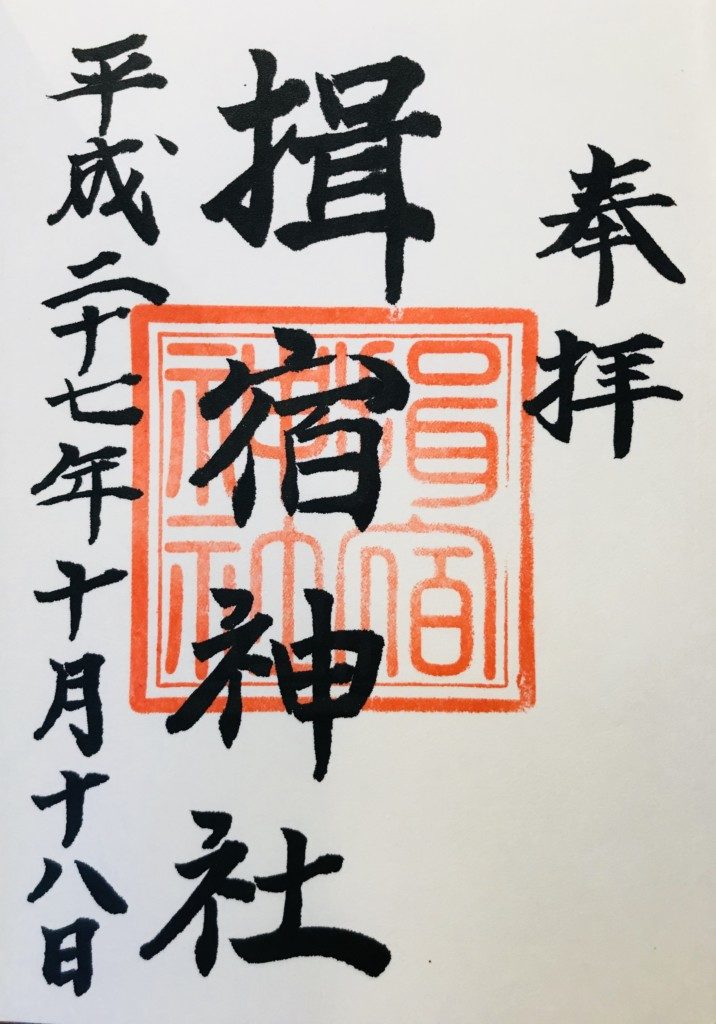 奉拝
揖宿神社
平成二十七年十月十八日
揖宿
神社